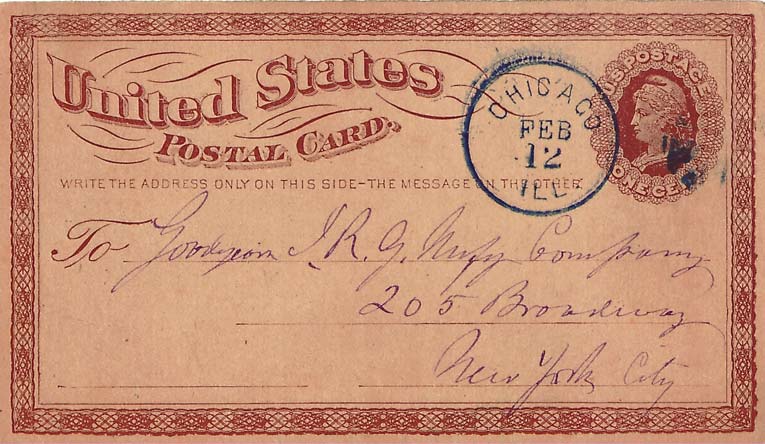 United States
POSTAL CARD.
WRITE THE ADDRESS ONLY ON THIS SIDE-THE MESSAGE ON THE OTHER
CHICAGO
FEB
12
ILL.
U.S. POSTAGE
ONE CENT
To Goodyear I. R. G. Mnfg Company
205 Broadway
New York City